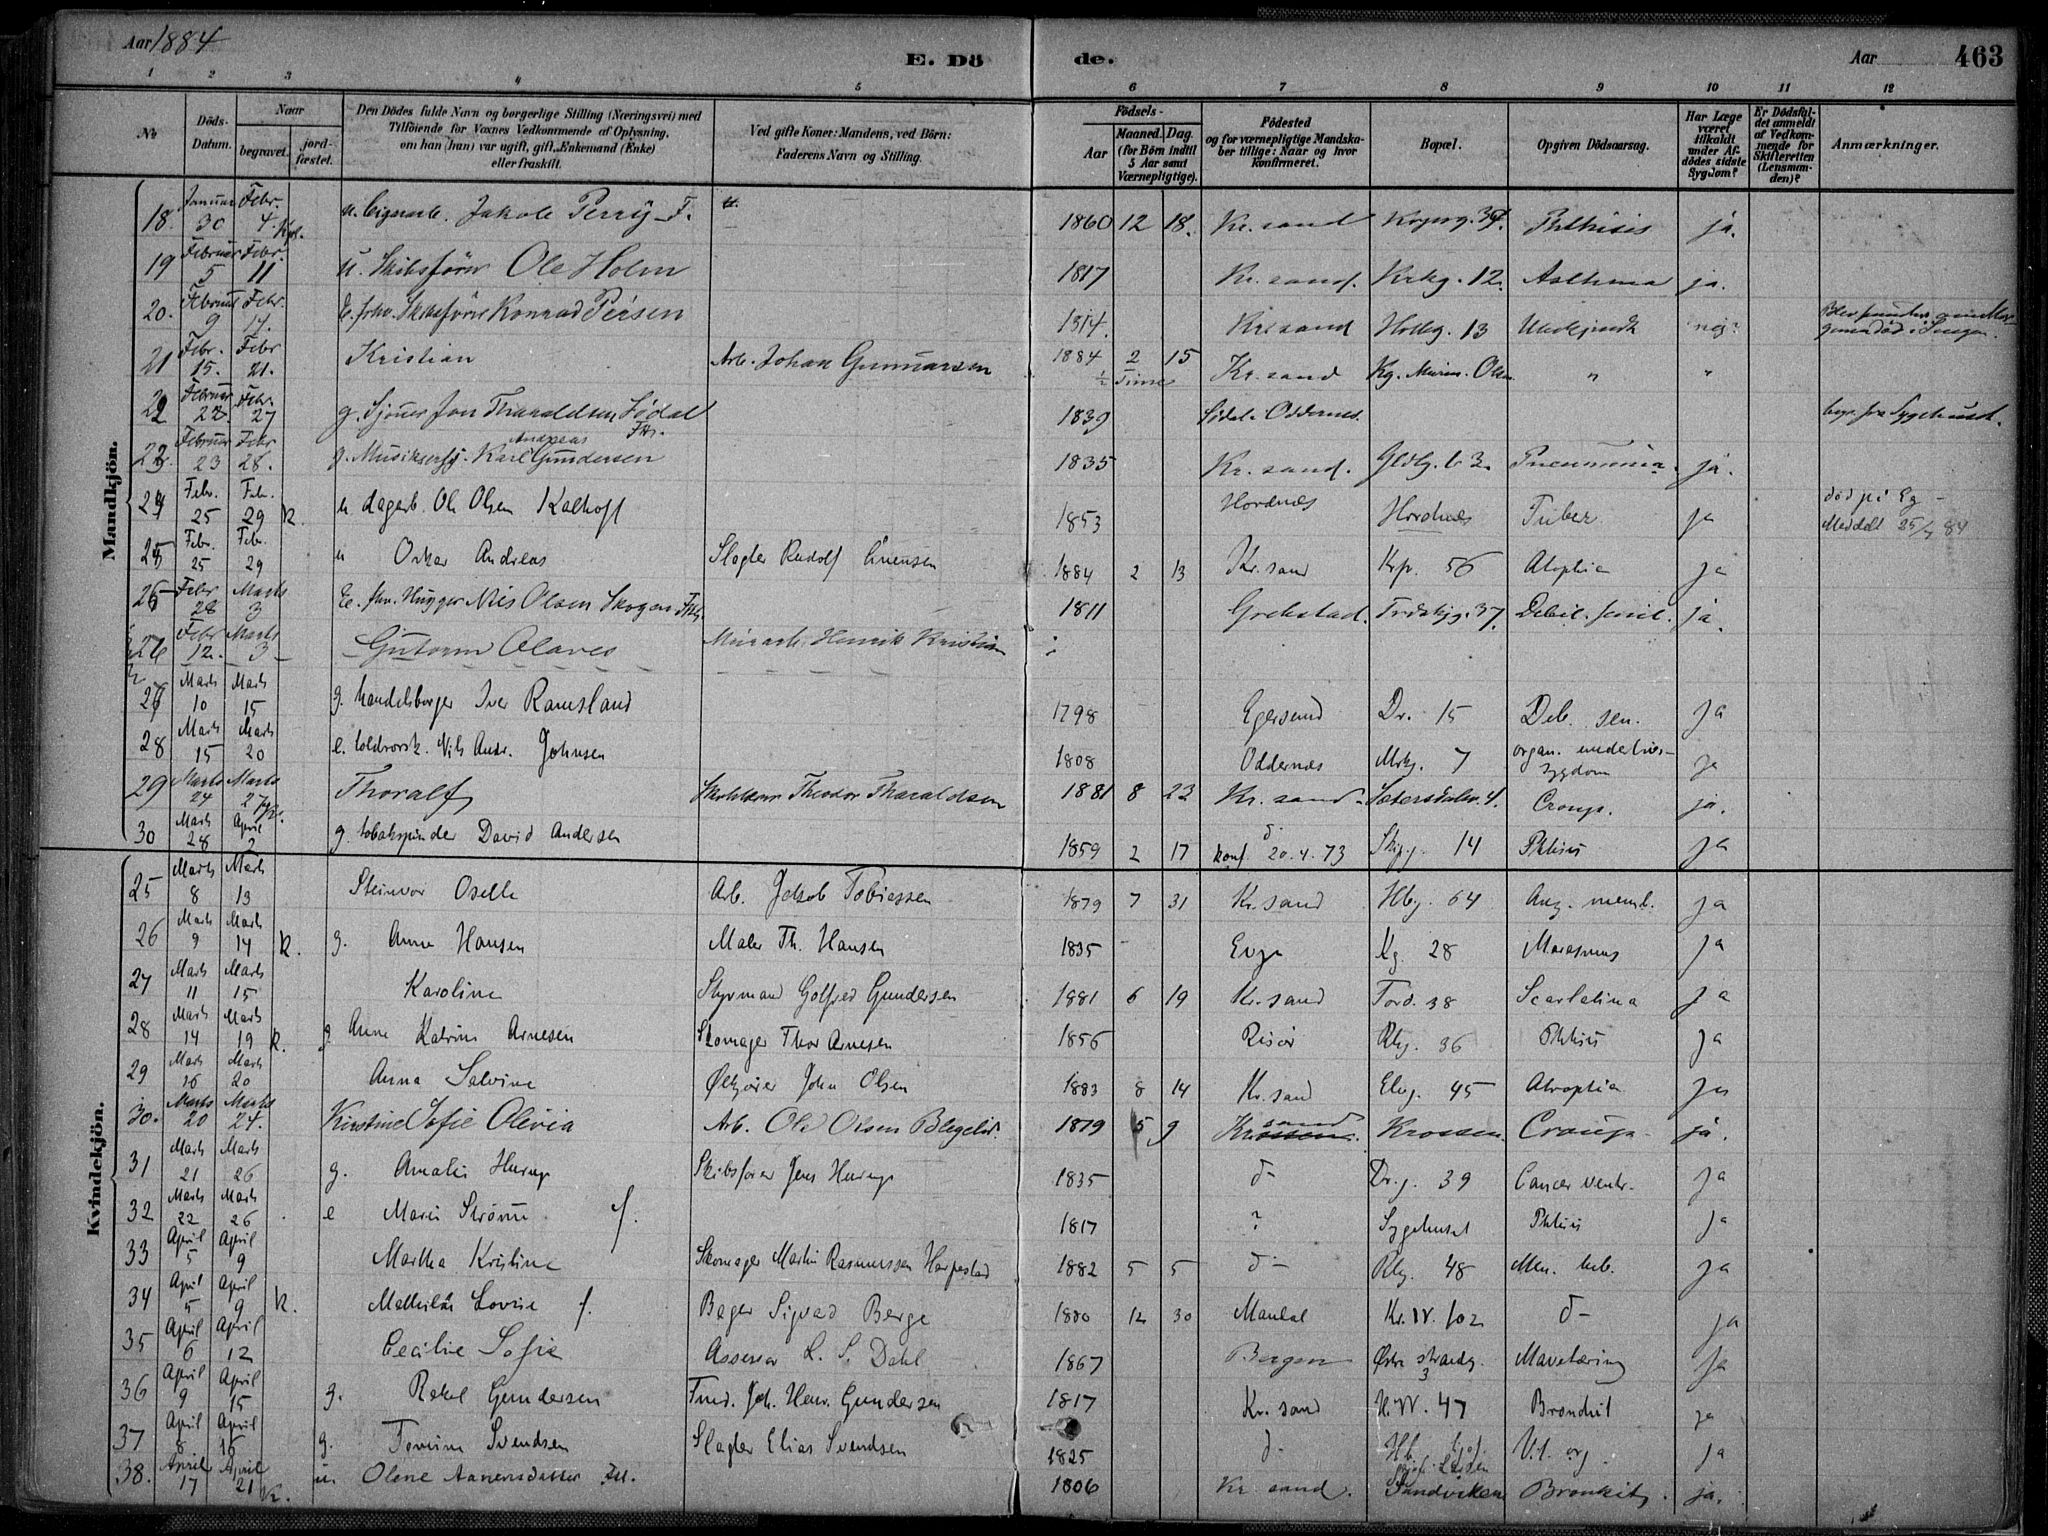 Aar 1884 E. Dö de. Aar 463
1 2 3 4 5 6 7 8 9 10 11 12
No
Döds-Datum.
Naar
begravet.
jord-fæstet.
Den Dödes fulde Navn og borgerlige Stilling (Næringsvei) med
Tilföiende for Voxnes Vedkommende af Oplysning,
om han (hun) var ugift, gift, Enkemand (Enke)
eller fraskilt.
Ved gifte Koner: Mandens, ved Börn:
Faderens Navn og Stilling.
Födsels-
Aar
Maaned. Dag.
(for Börn indtil
5 Aar samt
Værnepligtige).
Födested
og for værnepligtige Mandska-
ber tillige: Naar og hvor
konfirmeret.
Bopæl.
Opgiven Dödsaarsag.
Har Læge
været
tilkaldt
under Af-
dödes sidste
Sygdom?
Er Dödsfal-
det anmeldt
af Vedkom-
mende for
Skifteretten
(Lensman-
den)?
Anmærkninger.
Mandkjön.
18. Januar 30 Febr. 4. u. Cigararb. Jakob Perry F. 1860 12 18. Kr.sand Phthisis ja.
19 Februar 5 Febr. 11 u. Skibsförer Ole Holm 1817 Kr.sand. Krkg. 12. Asthma ja.
20. Februar 9 Febr. 14. E. forhv. Skibsförer Konrad Persen 1814. Kr.sand Holbg. 13 Ubekjendt nej.
21 Febr. 15. Febr 21. Kristian Arb. Johan Gunnarsen 1884 2 15 ½ Time Kr.sand Kg. Murm. Olsen " "
22 Februar 22. Febr. 27 g. Sjömer Jon Tharaldsen Södal Fttr. 1839 Södal. Oddernes begr. fra Sygehuset.
23. Februar 23 Febr 28. g. Karl Andreas Gundersen 1835 Kr.sand. Pneumonia. ja.
24 Febr. 25 Febr. 29 K. u dagarb. Ole Olsen Kalhoff 1853 Hordnes Hordnes Tuber ja död på Eg - Meddelt 25/4 84
25 Febr. 25 Febr. 29 u Oskar Andreas Slagter Rudolf Evensen 1884 2 13 Kr.sand Krp. 56 Atophia ja
26 Febr 28 Marts 3 E. fhv. Hugger Nils Olsen Skogen Fttg. 1811 Grebstad. 37. Debil. senil. ja.
Febr 12. Marts 3 Gutorm Olaves Henrik Kristian
27 Marts 10 Marts 15 g. handelsborger Iver Ramsland 1798 Egersund Dr. 15 Deb. sen. ja
28 Marts 15 Marts 20 e. toldrorsk. Nils Andr. Johnsen 1808 Oddernes Mrkg. 7 organ. underlivs- sygdom ja
29 Marts 24 Marts 27 Thoralf Theodor Tharaldsen 1881 8 23 Kr.sand Sætersdalsv. 4. Croup. ja.
30 Marts 28 April 2 g. tobakspinder David Andersen 1859 2 17 d- konf. 20.4.73 Skipg. 14 Phtisis ja
Kvindekjön.
25 Marts 8 Marts 13 Steinvor Oselle Arb. Jakob Tobiassen 1879 7 31 Kr.sand Hbg. 64 Ang. memb. ja
26 Marts 9 Marts 14 K. g. Anne Hansen Maler Th. Hansen 1835 Evje Kg. 28 Marasmus ja
27 Marts 11 Marts 15 Karoline Styrmand Golfred Gundersen 1881 6 19 Kr.sand Tord. 38 Scarlatina ja
28 Marts 14 Marts 19 K. g. Anne Katrine Arnesen Skomager Thor Arnesen 1856 Risör Rhg. 36 Phtisis ja
29 Marts 16 Marts 20 Anna Salvine John Olsen 1883 8 14 Kr.sand Elvg. 45 Atrophia ja
30. Marts 20 Marts 24. Kirstine Sofie Olivia Arb. Ole Olsen Blegelid. 1879 5 9 Kr sand Krossen. Croup. ja.
31 Marts 21 Marts 26 g. Amalie Hurup Skibsfører Jens Hurup 1835 d- Dr.g. 39 Cancer ventr. ja
32 Marts 22 Marts 26 e Maren Strømme f. 1817 ? Sygehuset Phtisis ja
33 April 5 April 9 Martha Kristine Skomager Martin Rasmussen Harpestad 1882 5 5 d- Rhg. 48 Men. tub. ja
34 April 5 April 9 K. Mathilde Lovise f. Bager Sigvad Berge 1880 12 30 Mandal Kr. W. 102 d- ja
35 April 6 April 12 Cecilie Sofie Assessor L. S. Dahl 1867 Bergen Østre strandg. 3 Mavetæring ja
36 April 9 April 15 g. Rakel Gundersen Fuld. Joh. Henr. Gundersen 1817 Kr.sand K.W. 47 Bronchit ja
37 April 8 April 16 g. Tomine Svendsen Slagter Elias Svendsen 1825 d- V.t. org. ja
38. April 17 April 21 K. u Olene Aanensdatter Ftt. 1806 Kr sand. Larsen Sandviken Bronkit. ja.